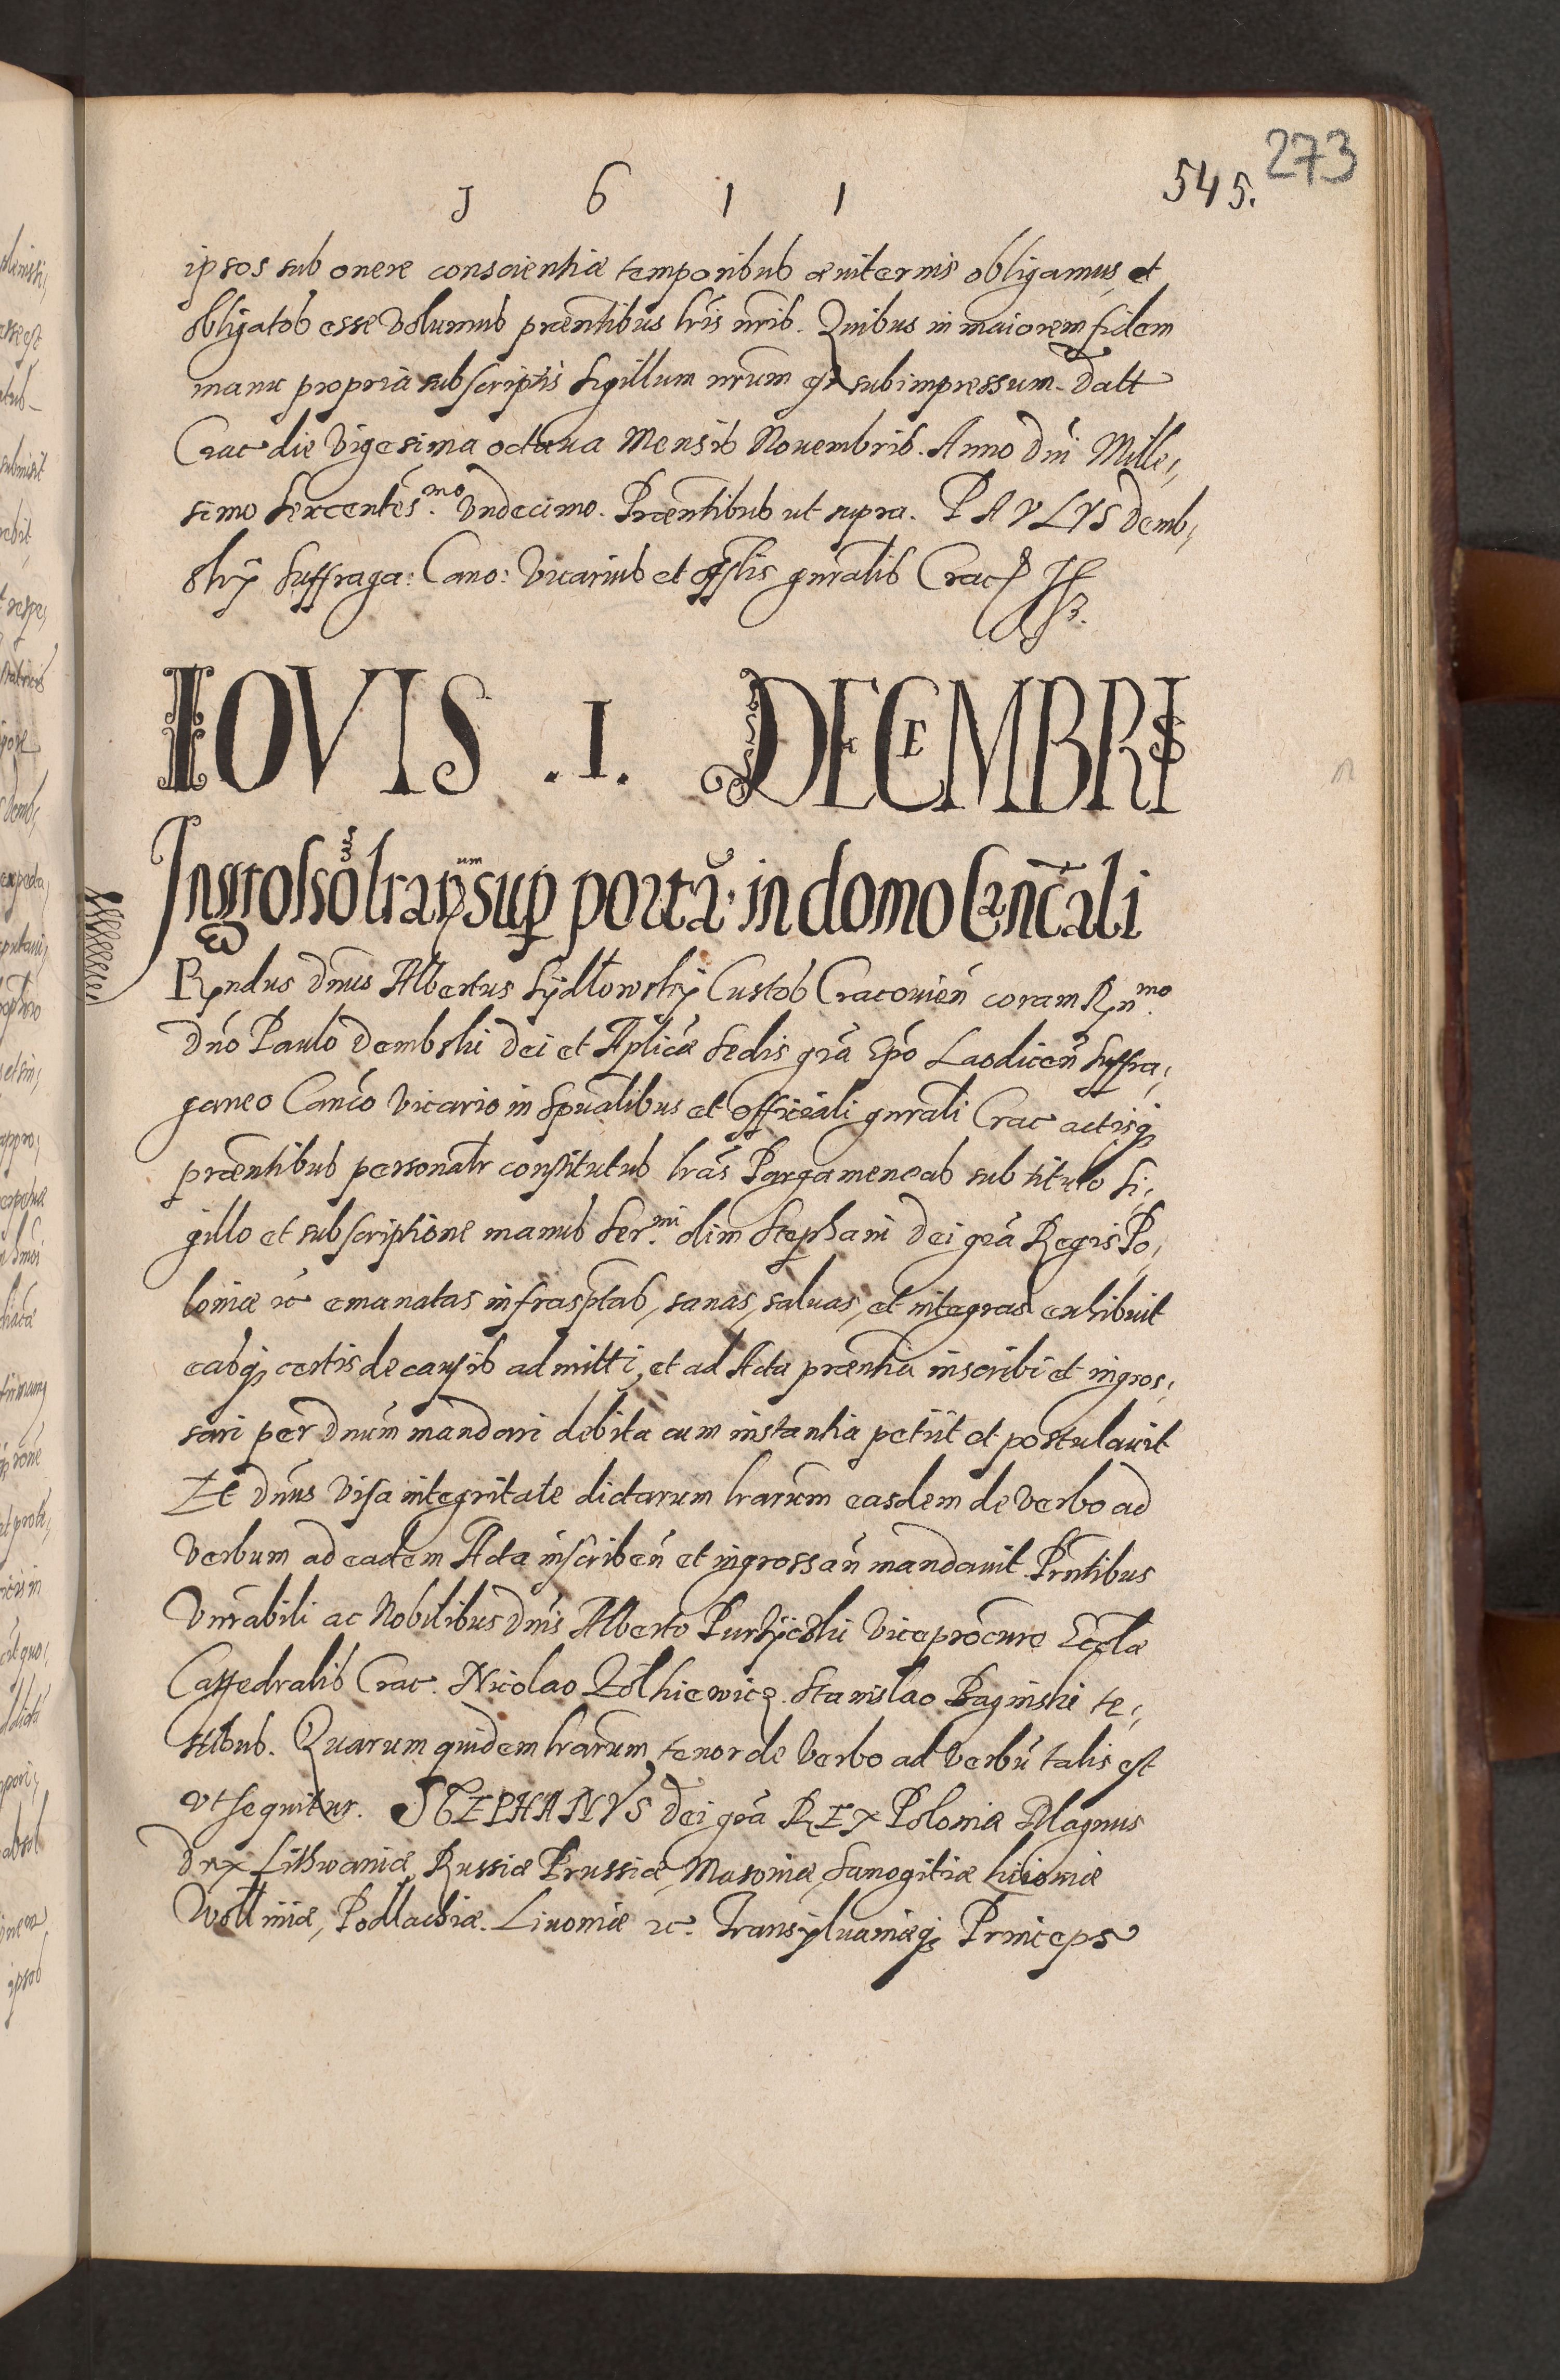 273
1 6 1 1 545.
ipsos sub onere conscientiæ temporibus æviternis obligamus, et
obligatos esse volumus præntibus lris nris. Quibus in maiorem fidem
manu propria subscriptis Sigillum nrum est subimpressum. Datt
Crac die Vigesima octaua Mensis Nouembris. Anno Dni Mille,
simo Sexcentes.mo Vndecimo. Præntibus ut supra. PAVLVS Demb,
skÿ Suffraga: Cano: Vicarius et offlis gnralis Crac
IOVIS .I. DECEMBRIS
Ingrossō lrarum sup portā in domo Cancali
Rndus dnus Albertus Sÿdłowskÿ Custos Cracouien coram Rn.mo
Dno Paulo Dembski Dei et Aplicæ Sedis gra Epo Laodicen Suffra,
ganeo Canco Vicario in Spualibus et Officiali gnrali Crac actisq
præntibus personalr constitutus lras Pargameneas sub titulo Si,
gillo et subscriptione manus Ser.mi olim Stephani Dei gra Regis Po,
loniæ &c emanatas infrasptas, sanas, saluas, et integras exhibuit
easq certis de causis admitti, et ad Acta præntia inscribi et ingros,
sari per Dnum mandari debita cum instantia petiit et postulauit
Et Dnus visa integritate dictarum lrarum easdem de verbo ad
verbum ad eadem Acta inscriben et ingrossan mandauit. Prntibus
Vnrabili ac Nobilibus Dnis Alberto Viceprocure Eccla
Cathedralis Crac. Nicolao Zołkiewicz. Stanislao Baginski te,
stibus. Quarum quidem lrarum tenor de verbo ad verbū talis est
vt sequitur. STEPHANVS Dei gra REX Poloniæ Magnus
Dux Lithwaniæ, Russiæ Prussiæ, Masouiæ, Samogitiæ kiiouiæ
Wolliniæ, Podlachiæ. Liuoniæ &c. Transÿluaniæq Princeps